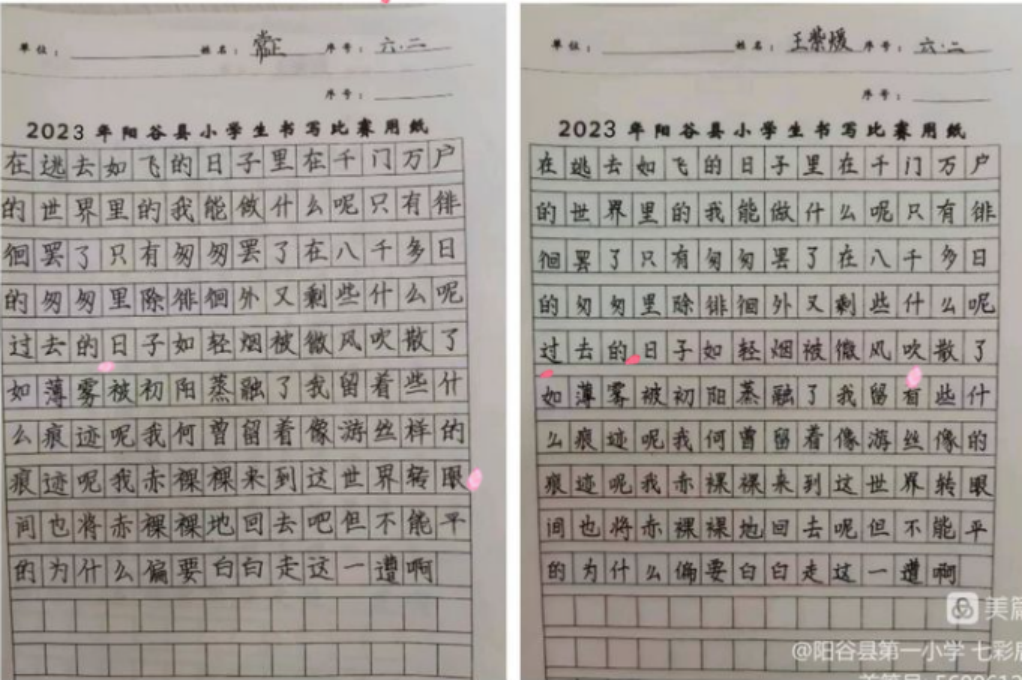 单位： 姓名： 序号：六.二
序号：
2023年阳谷县小学生书写比赛用纸
在逃去如飞的日子里在千门万户
的世界里的我能做什么呢只有徘
徊罢了只有匆匆罢了在八千多日
的匆匆里除徘徊外又剩些什么呢
过去的日子如轻烟被微风吹散了
如薄雾被初阳蒸融了我留着些什
么痕迹呢我何曾留着像游丝样的
痕迹呢我赤裸裸来到这世界转眼
间也将赤裸裸地回去吧但不能平
的为什么偏要白白走这一遭啊
单位： 姓名：王紫媛 序号：六.二
序号：
2023年阳谷县小学生书写比赛用纸
在逃去如飞的日子里在千门万户
的世界里的我能做什么呢只有徘
徊罢了只有匆匆罢了在八千多日
的匆匆里除徘徊外又剩些什么呢
过去的日子如轻烟被微风吹散了
如薄雾被初阳蒸融了我留有些什
么痕迹呢我何曾留着像游丝像的
痕迹呢我赤裸裸来到这世界转眼
间也将赤裸裸地回去呢但不能平
的为什么偏要白白走这一遭啊
美篇
@阳谷县第一小学 七彩